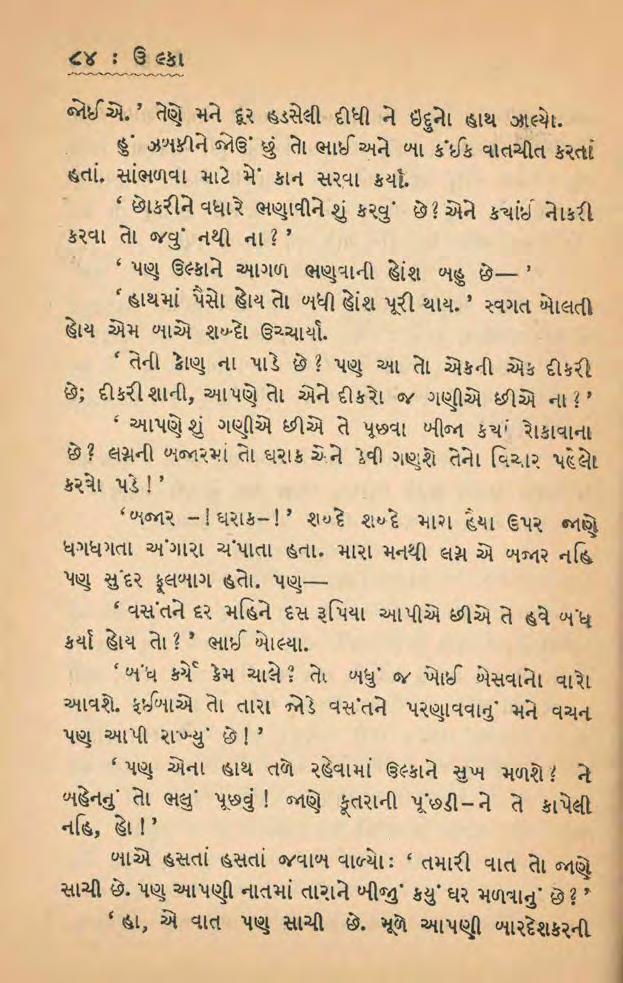 ૮૪ : ઉલ્કા
જોઈએ.’ તેણે મને દૂર હડસેલી દીધી ને ઇંદુનો હાથ ઝાલ્યો.
હું ઝબકીને જોઉં છું તો ભાઈ અને બા કંઈક વાતચીત કરતાં
હતાં. સાંભળવા માટે મેં કાન સરવા કર્યા.
‘ છોકરીને વધારે ભણાવીને શું કરવું છે? એને કયાંઈ નોકરી
કરવા તો જવું નથી ના ? ’
‘ પણ ઉલ્કાને આગળ ભણવાની હોંશ બહુ છે— ’
‘ હાથમાં પૈસો હોય તો બધી હોંશ પૂરી થાય. ’ સ્વગત બોલતી
હોય એમ બાએ શબ્દો ઉચ્ચાર્યા.
‘ તેની કોણ ના પાડે છે ? પણ આ તો એકની એક દીકરી
છે; દીકરી શાની, આપણે તો એને દીકરો જ ગણીએ છીએ ના ? ’
‘ આપણે શું ગણીએ છીએ તે પૂછવા બીજા કયાં રોકાવાના
છે ? લગ્નની બજારમાં તો ઘરાક એને કેવી ગણશે તેનો વિચાર પહેલો
કરવો પડે ! ’
‘બજાર –! ઘરાક–! ’ શબ્દે શબ્દે મારા હૈયા ઉપર જાણે
ધગધગતા અંગારા ચંપાતા હતા. મારા મનથી લગ્ન એ બજાર નહિ
પણ સુંદર ફૂલબાગ હતો. પણ—
‘ વસંતને દર મહિને દસ રૂપિયા આપીએ છીએ તે હવે બંધ
કર્યા હોય તો ? ’ ભાઈ બોલ્યા.
‘બંધ કર્યે કેમ ચાલે ? તો બધું જ ખોઈ બેસવાનો વારો
આવશે. ફઈબાએ તો તારા જોડે વસંતને પરણાવવાનું મને વચન
પણ આપી રાખ્યું છે ! ’
‘ પણ એના હાથ તળે રહેવામાં ઉલ્કાને સુખ મળશે ? ને
બહેનનું તો ભલું પૂછવું ! જાણે કૂતરાની પૂંછડી–ને તે કાપેલી
નહિ, હો ! ’
બાએ હસતાં હસતાં જવાબ વાળ્યો : ‘ તમારી વાત તો જાણે
સાચી છે. પણ આપણી નાતમાં તારાને બીજું કયું ઘર મળવાનું છે ? ’
‘ હા, એ વાત પણ સાચી છે. મૂળે આપણી બારદેશકરની